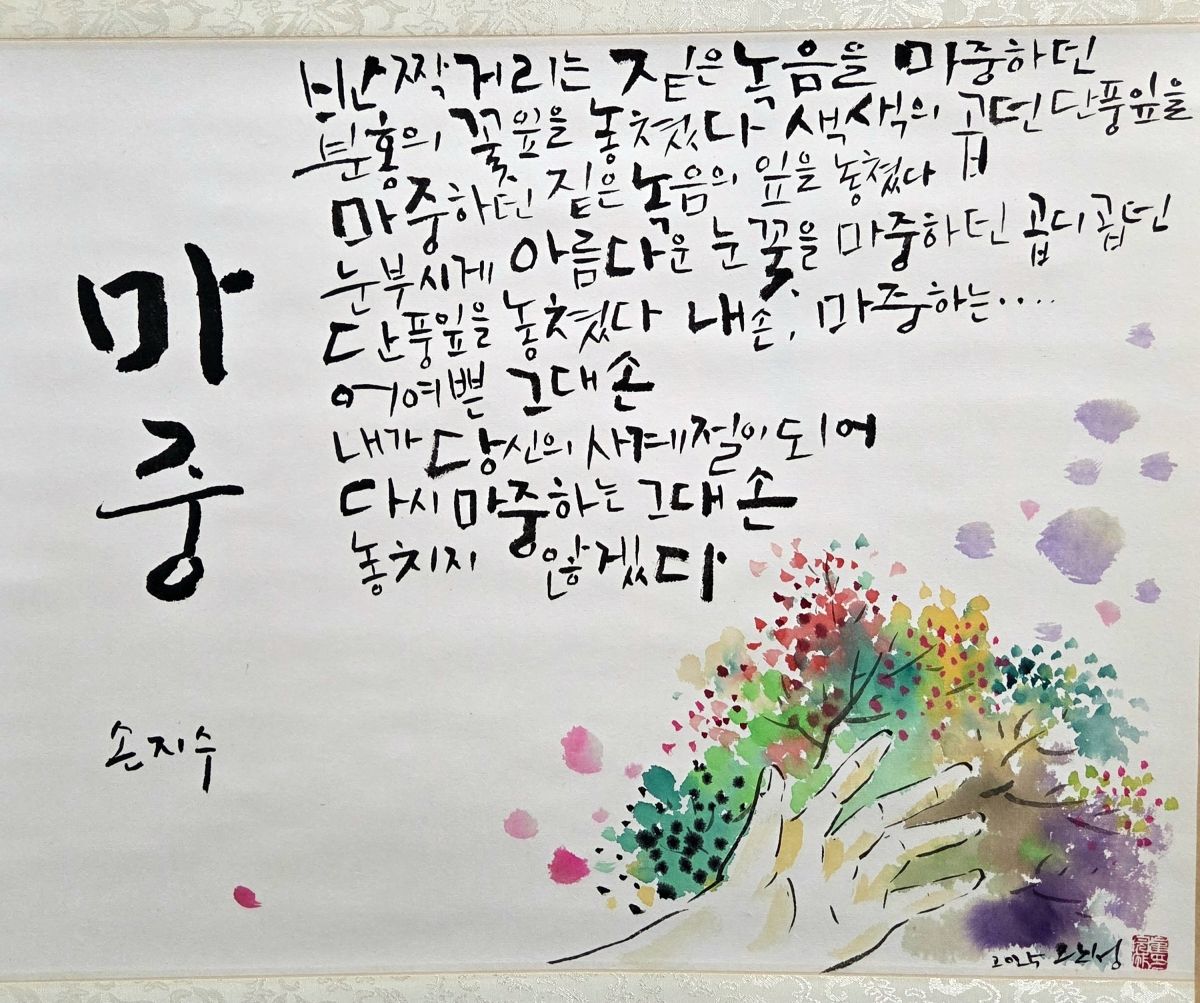 마중
손지수
반짝거리는 짙은 녹음을 마중하던
분홍의 꽃잎을 놓쳤다 색색의 곱던 단풍잎을
마중하던 짙은 녹음의 잎을 놓쳤다
눈부시게 아름다운 눈꽃을 마중하던 곱디곱던
단풍잎을 놓쳤다 내 손, 마중하는....
어여쁜 그대 손
내가 당신의 사계절이 되어
다시 마중하는 그대 손
놓치지 않겠다